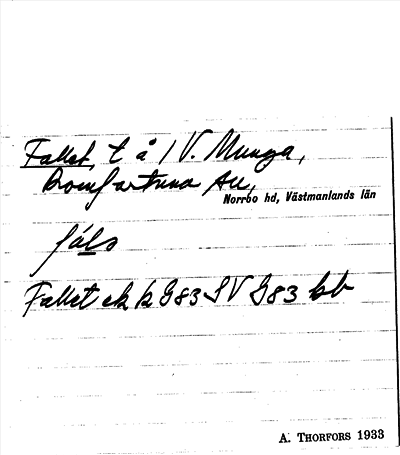 Fallet, t å / V. Munga,
Romfartuna sn,
Norrbo hd, Västmanlands län
fáls
Fallet ek k G83 SV G83 bb
A. THORFORS 1933